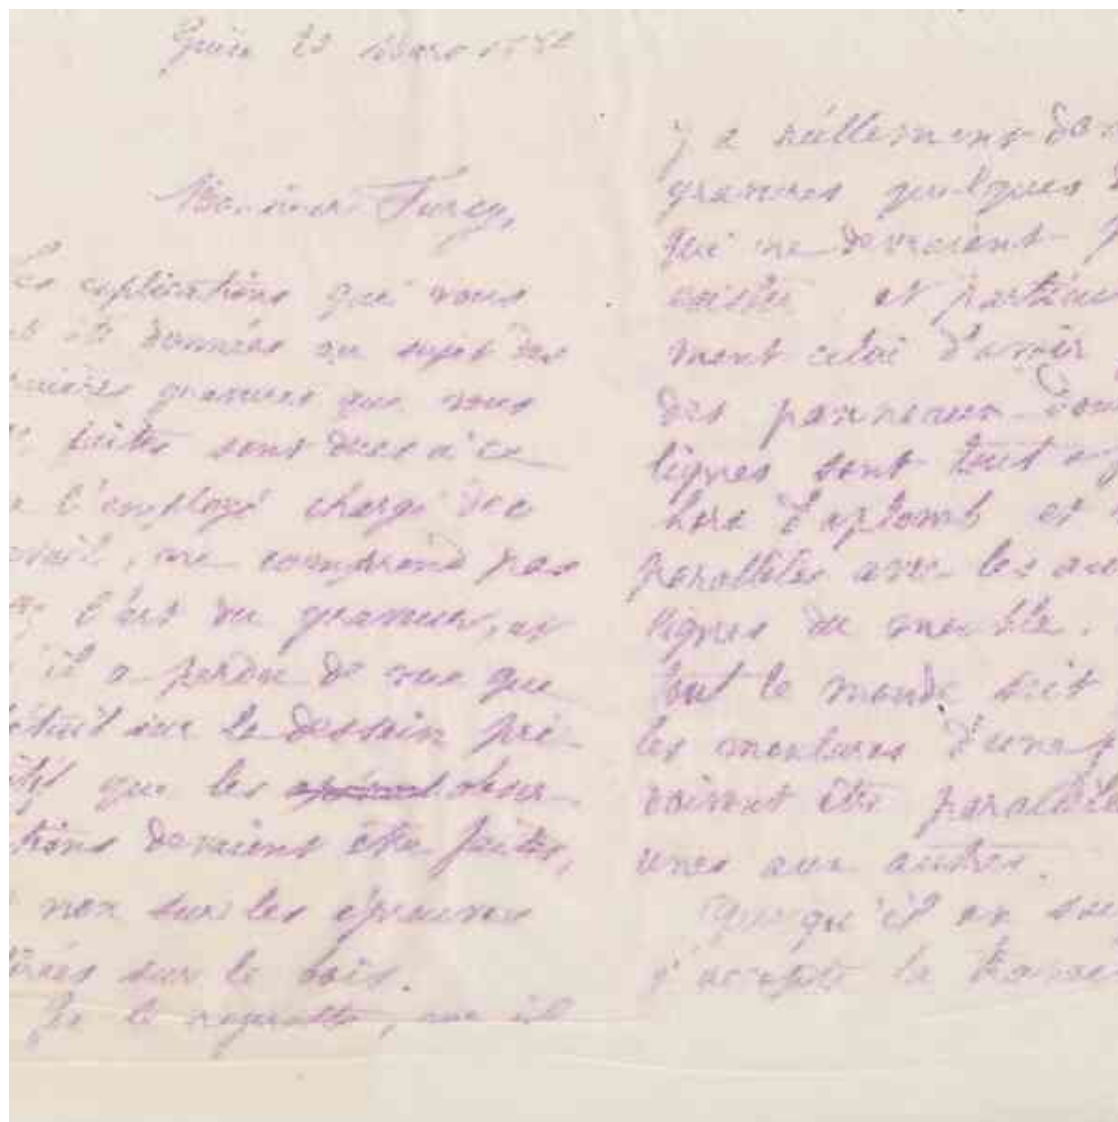 Guise 23 Mars
Monsieur Furcy,
Les explications qui vous
été données au sujet des
gravures que vous
faites sont dues à ce
l'employé chargé de ce
, ne comprend pas
l'art du graveur, et
il a perdu de vue que
c'était sur le dessin pri-
que les obser-
tions devaient être faites,
non sur les épreuves
tirées sur le bois.
Je le regrette, car il
y a réellement dans
gravures quelques
qui ne devraient p
exister et particu
ment celui d'avoir
des panneaux don
lignes sont tout a f
hors d'aplomb et
parallèles avec les au
lignes du meuble.
tout le monde sait
les montures d'une p
doivent être parallèl
unes aux autres.
Quoiqu'il en soi
j'accepte le travai